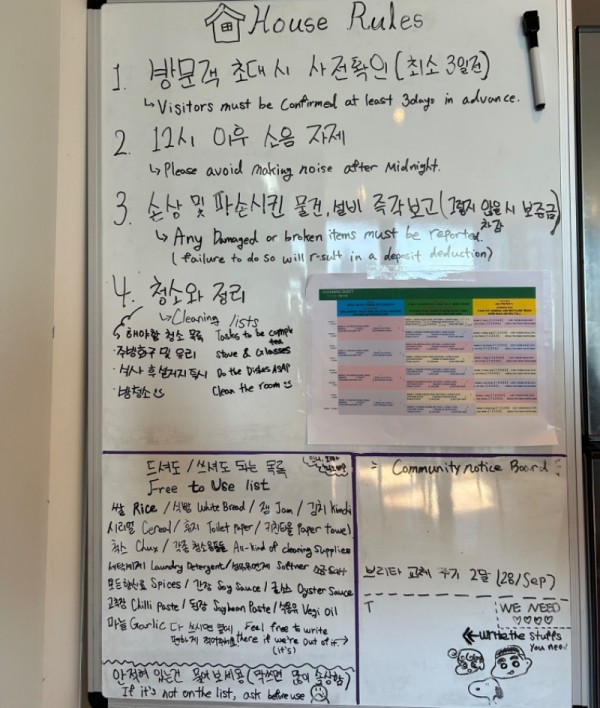 House Rules
1. 방문객 초대시 사전확인 (최소 3일전)
↳ Visitors must be confirmed at least 3days in advance.
2. 12시 이후 소음 자제
↳ Please avoid making noise after Midnight.
3. 손상 및 파손시킨 물건, 설비 즉각보고 (그렇지 않을 시 보증금 차감)
↳ Any Damaged or broken items must be reported.
(failure to do so will result in a deposit deduction)
4. 청소와 정리
↳ Cleaning lists
해야할 청소 목록 Tasks to be completed
· 주방기구 및 유리 Stove & Glasses
· 식사 후 설거지 즉시 Do the Dishes ASAP
· 방청소 Clean the room
드셔도 / 쓰셔도 되는 목록
Free to Use list
쌀 Rice / 식빵 White Bread / 잼 Jam / 김치 kimchi
시리얼 Cereal / 휴지 Toilet paper / 키친타올 Paper towel
척스 Chux / 각종 청소용품들 All-kind of cleaning supplies
세탁세제 Laundry Detergent / 섬유유연제 Softner 소금 Salt
모든향신료 Spices / 간장 Soy Sauce / 굴소스 Oyster Sauce
고추장 Chilli Paste / 된장 Soybean Paste / 식용유 Vegi Oil
마늘 Garlic 다 쓰시면 옆에 편하게 적어주세요 Feel free to write there if we're out of it. (it's)
안적혀 있는건 물어보세용 (막쓰면 많이 속상함)
If it's not on the list, ask before use
Community notice Board
브리타 교체 주기 2달 (28/Sep)
T
WE NEED
♡♡♡♡
← Write the stuffs you need